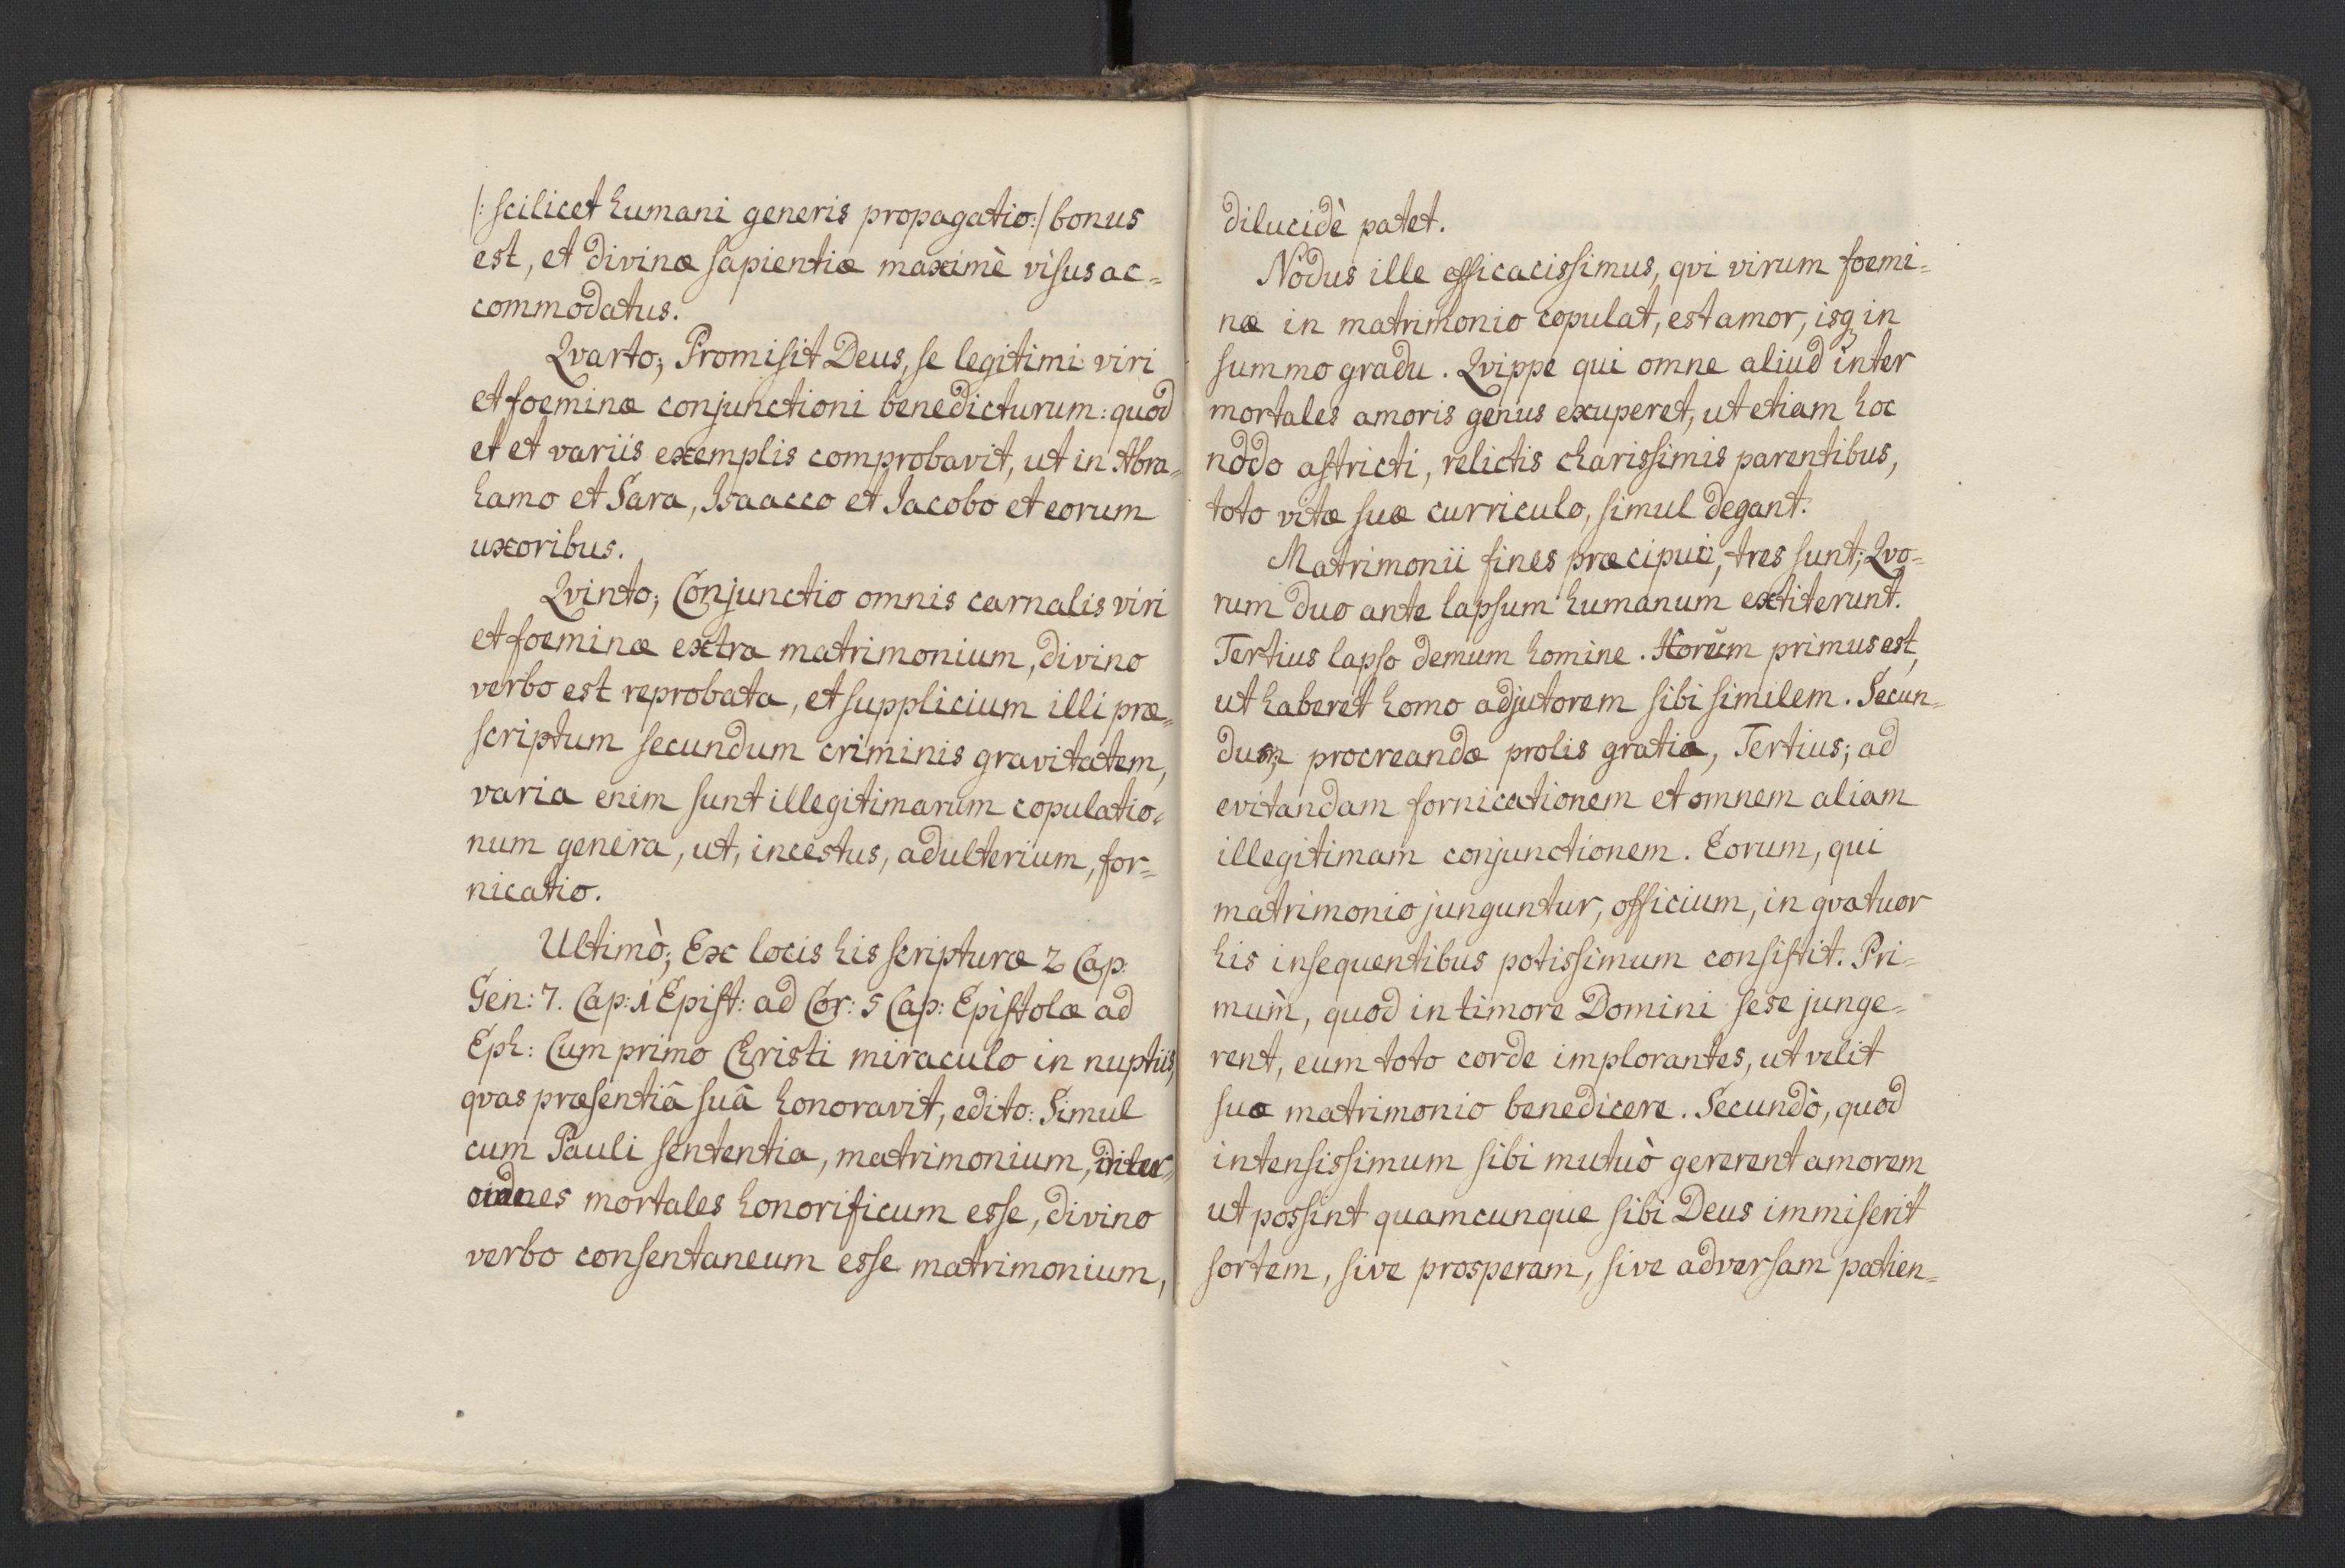 /: scilicet humani generis propagatio:/ bonus
est, et divinæ sapientiæ maximè visus ac=
commodatus.
Qvarto; Promisit Deus, se legitimi viri
et foeminæ conjunctioni benedicturum: quod
et et variis exemplis comprobavit, ut in Abra=
hamo et Sara, Isaacco et Jacobo et eorum
uxoribus.
Qvinto; Conjunctio omnis carnalis viri
et foeminæ extra matrimonium, divino
verbo est reprobata, et supplicium illi præ=
scriptum secundum criminis gravitatem,
varia enim sunt illegitimarum copulatio=
num genera, ut, incestus, adulterium, for=
nicatio.
Ultimò; Ex locis his scripturæ 2 Cap:
Gen: 7. Cap: 1 Epist: ad Cor: 5 Cap: Epistolæ ad
Eph: Cum primo Christi miraculo in nuptiis,
qvas præsentiâ suâ honoravit, edito: Simul
cum Pauli sententia, matrimonium, inter
omnes mortales honorificum esse, divino
verbo consentaneum esse matrimonium,
dilucidè patet.
Nodus ille efficacissimus, qvi virum foemi=
næ in matrimonio copulat, est amor, isq in
summo gradu. Qvippe qui omne aliud inter
mortales amoris genus exuperet, ut etiam hoc
nodo astricti, relictis charissimis parentibus,
toto vitæ suæ curriculo, simul degant.
Matrimonii fines præcipui, tres sunt; Qvo=
rum duo ante lapsum humanum extiterunt.
Tertius lapso demum homine. Horum primus est,
ut haberet homo adjutorem sibi similem. Secun=
dus; procreandæ prolis gratia, Tertius; ad
evitandam fornicationem et omnem aliam
illegitimam conjunctionem. Eorum, qui
matrimonio junguntur, officium, in qvatuor
his insequentibus potissimum consistit. Pri=
mum, quod in timore Domini sese junge=
rent, eum toto corde implorantes, ut velit
suo matrimonio benedicere. Secundò, quod
intensissimum sibi mutuò gererent amorem
ut possint quamcunque sibi Deus immiserit
sortem, sive prosperam, sive adversam patien=